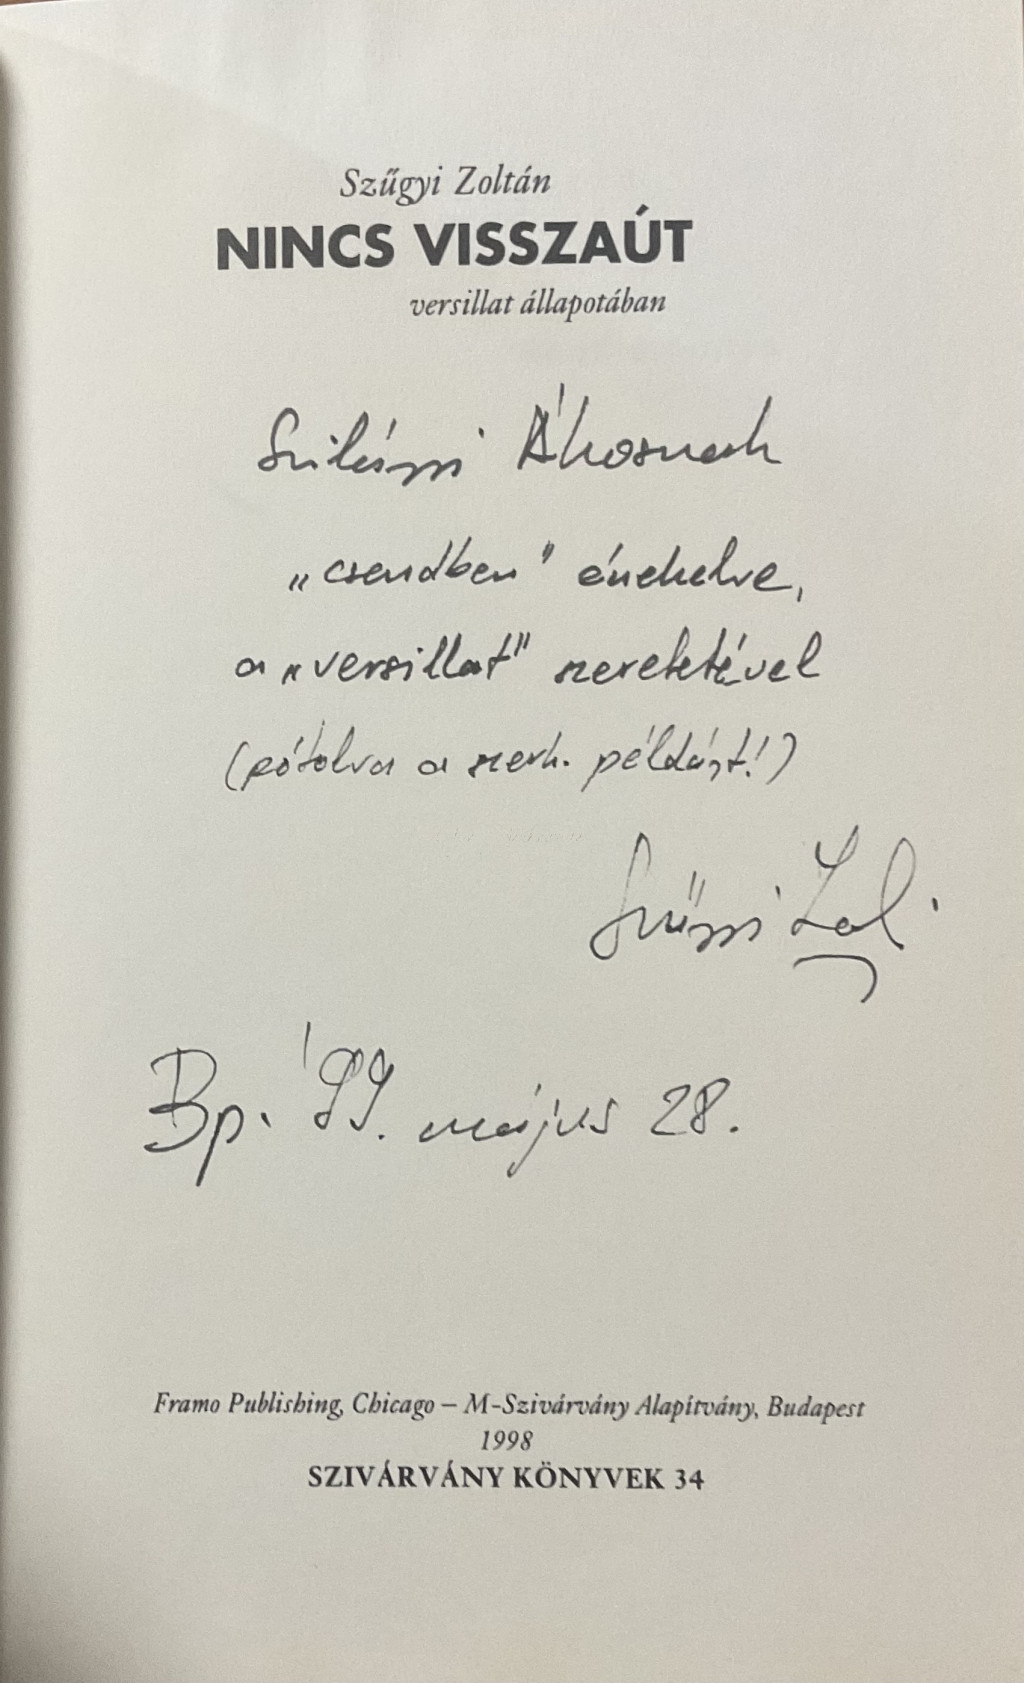 Szűgyi Zoltán
NINCS VISSZAÚT
versillat állapotában
Szilágyi Ákosnak
„csendben" énekelve,
a „versillat" szeretetével
(pótolva a szerk. példányt!)
Szűgyi Zol.
Bp. '99. május 28.
Framo Publishing, Chicago – M-Szivárvány Alapítvány, Budapest
1998
SZIVÁRVÁNY KÖNYVEK 34